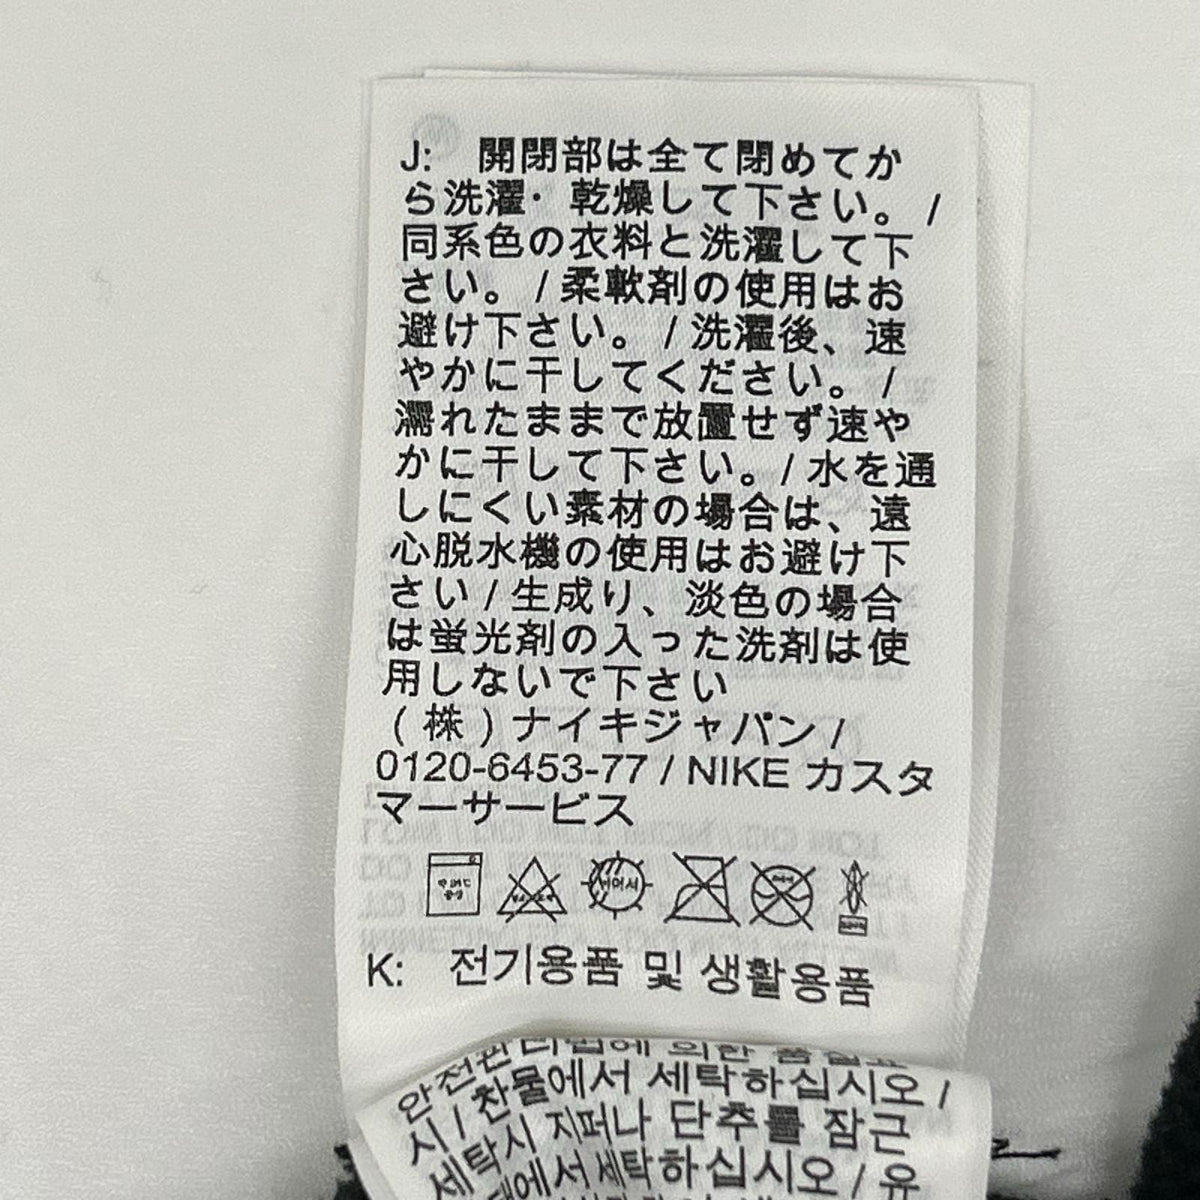 J: 開閉部は全て閉めてか
ら洗濯・乾燥して下さい。/
同系色の衣料と洗濯して下
さい。/ 柔軟剤の使用はお
避け下さい。/ 洗濯後、速
やかに干してください。/
濡れたままで放置せず速や
かに干して下さい。/ 水を通
しにくい素材の場合は、遠
心脱水機の使用はお避け下
さい / 生成り、淡色の場合
は蛍光剤の入った洗剤は使
用しないで下さい
(株)ナイキジャパン /
0120-6453-77 / NIKE カスタ
マーサービス
K: 전기용품 및 생활용품
안전관리법에 의한 품질표
시 / 찬물에서 세탁하십시오 /
세탁시 지퍼나 단추를 잠근
에서 세탁하십시오 / 유